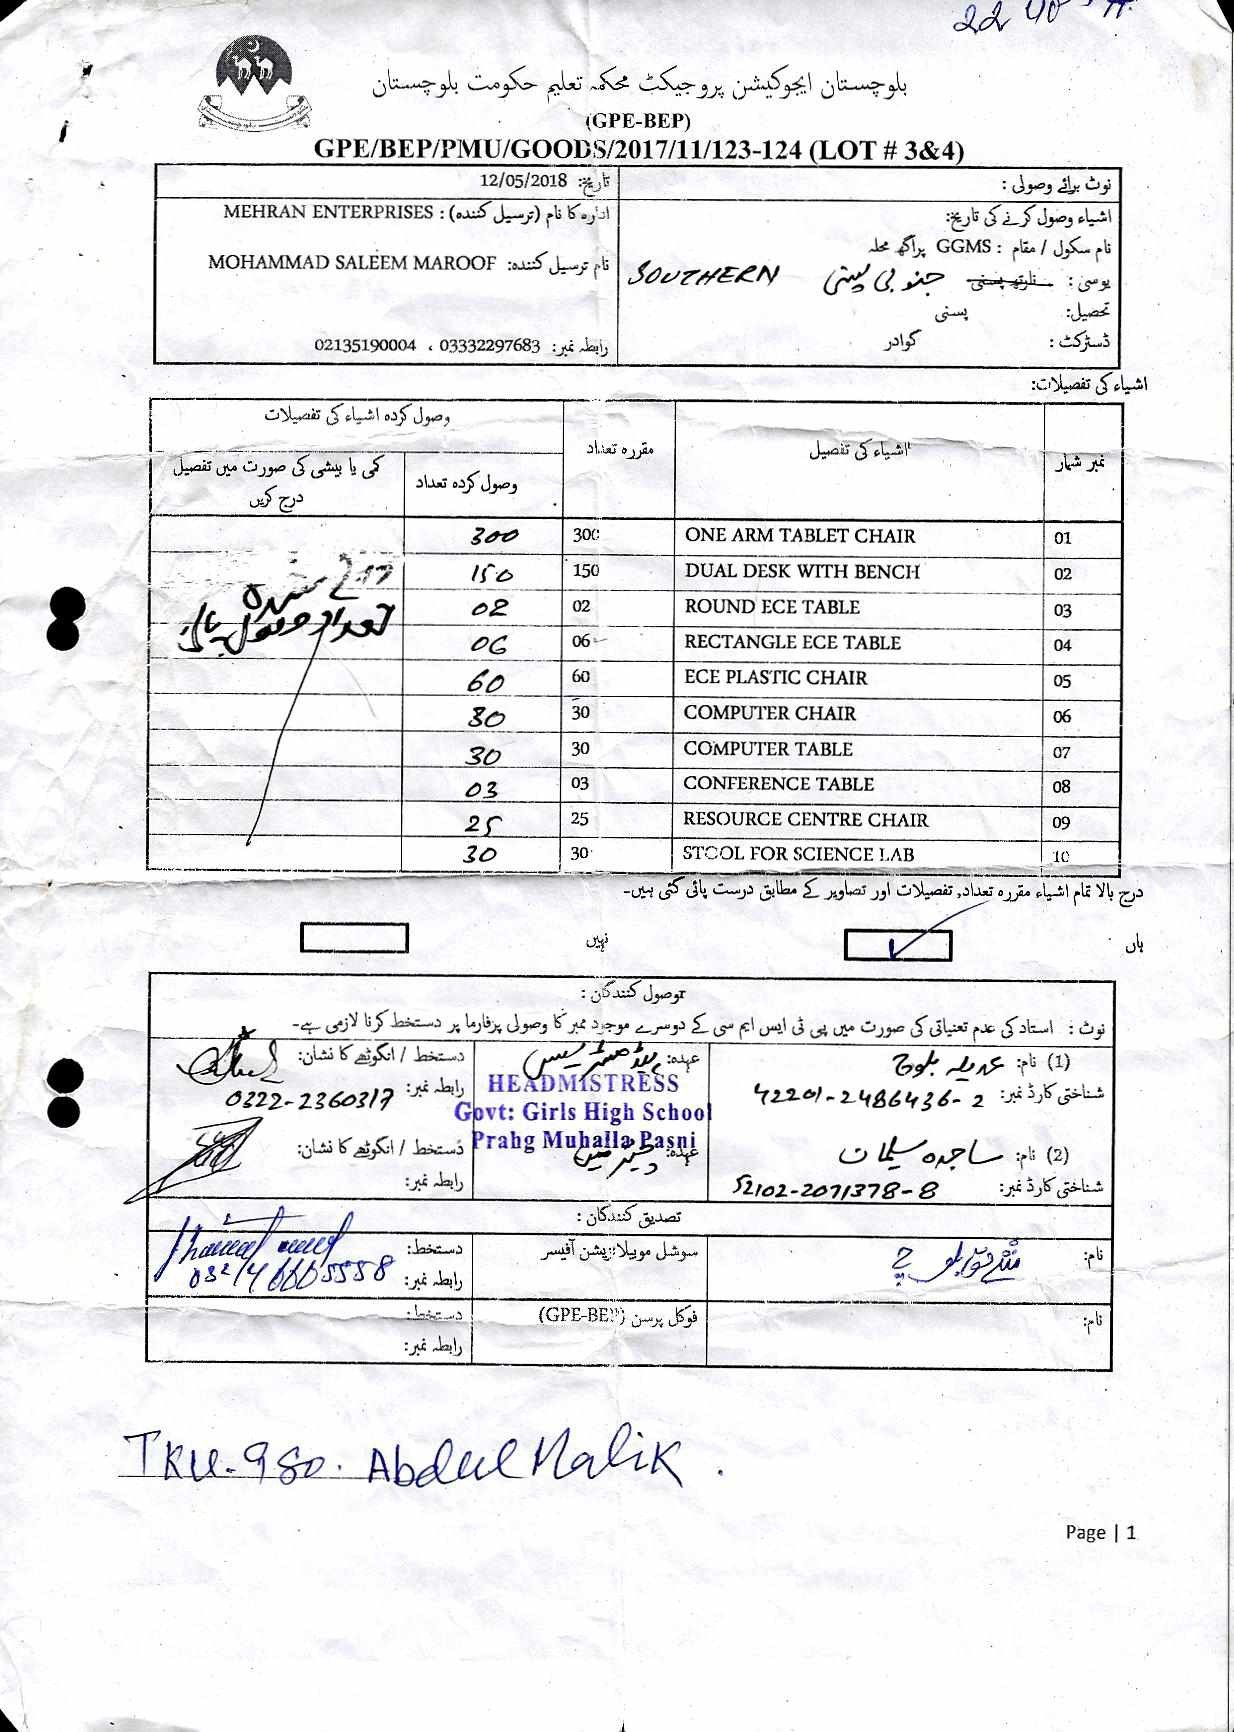 بلوچستان ایجوکیشن پروجیکٹ محکمہ تعلیم حکومت بلوچستان
(GPE-BEP)
GPE/BEP/PMU/GOODS/2017/11/123-124 (LOT # 3&4)
نوٹ برائے وصولی :
تاریخ: 12/05/2018
اشیاء وصول کرنے کی تاریخ:
ادارہ کا نام (ترسیل کنندہ) : MEHRAN ENTERPRISES
نام سکول / مقام : GGMS پراگھ محلہ
نام ترسیل کنندہ: MOHAMMAD SALEEM MAROOF
یوسی : نارتھ پسنی جنوبی پسنی SOUTHERN
تحصیل: پسنی
ڈسٹرکٹ : گوادر
رابطہ نمبر: 03332297683 ، 02135190004
اشیاء کی تفصیلات:
نمبر شمار اشیاء کی تفصیل مقررہ تعداد وصول کردہ اشیاء کی تفصیلات
وصول کردہ تعداد کمی یا بیشی کی صورت میں تفصیل درج کریں
01 ONE ARM TABLET CHAIR 300 300
02 DUAL DESK WITH BENCH 150 150
03 ROUND ECE TABLE 02 02
04 RECTANGLE ECE TABLE 06 06
05 ECE PLASTIC CHAIR 60 60
06 COMPUTER CHAIR 30 30
07 COMPUTER TABLE 30 30
08 CONFERENCE TABLE 03 03
09 RESOURCE CENTRE CHAIR 25 25
10 STOOL FOR SCIENCE LAB 30 30
درج شدہ
تعداد وصول پائی
درج بالا تمام اشیاء مقررہ تعداد, تفصیلات اور تصاویر کے مطابق درست پائی گئی ہیں۔
ہاں نہیں
وصول کنندگان :
نوٹ : استاد کی عدم تعنیاتی کی صورت میں پی ٹی ایس ایم سی کے دوسرے موجود ممبر کا وصولی پرفارما پر دستخط کرنا لازمی ہے۔
(1) نام: عدیلہ بلوچ عہدہ: ہیڈ مسٹریس دستخط / انگوٹھے کا نشان:
شناختی کارڈ نمبر: 42201-2486436-2 رابطہ نمبر: 0322-2360317
HEADMISTRESS
Govt: Girls High School
Prahg Muhalla Pasni
(2) نام: ساجدہ سلیمان عہدہ: دستخط / انگوٹھے کا نشان:
شناختی کارڈ نمبر: 52102-2071378-8 رابطہ نمبر:
تصدیق کنندگان :
نام: سوشل موبیلائزیشن آفیسر دستخط:
رابطہ نمبر:
نام: فوکل پرسن (GPE-BEP) دستخط:
رابطہ نمبر:
TKU-980. Abdul Malik.
Page | 1